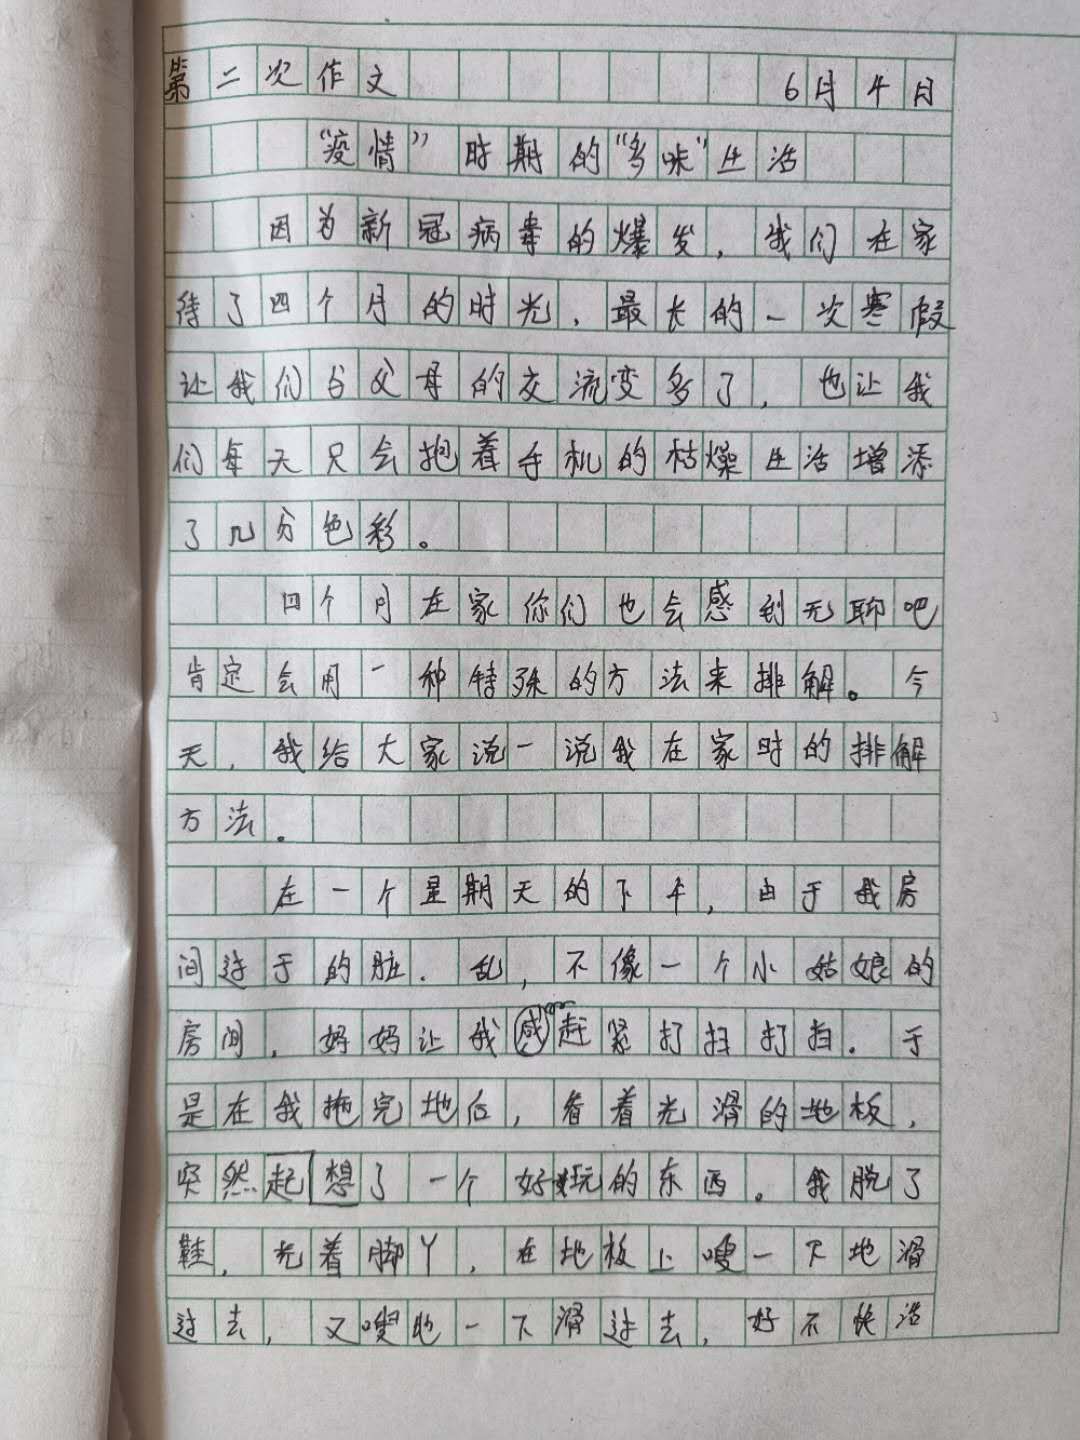 第二次作文 6月4日
“疫情”时期的“多味”生活
因为新冠病毒的爆发，我们在家
待了四个月的时光，最长的一次寒假
让我们与父母的交流变多了，也让我
们每天只会抱着手机的枯燥生活增添
了几分色彩。
四个月在家你们也会感到无聊吧
肯定会用一种特殊的方法来排解。今
天，我给大家说一说我在家时的排解
方法。
在一个星期天的下午，由于我房
间过于的脏．乱，不像一个小姑娘的
房间，妈妈让我赶紧打扫打扫．于
是在我拖完地后，看着光滑的地板，
突然起想了一个好玩的东西。我脱了
鞋，光着脚丫，在地板上嗖一下地滑
过去，又嗖地一下滑过去，好不快活